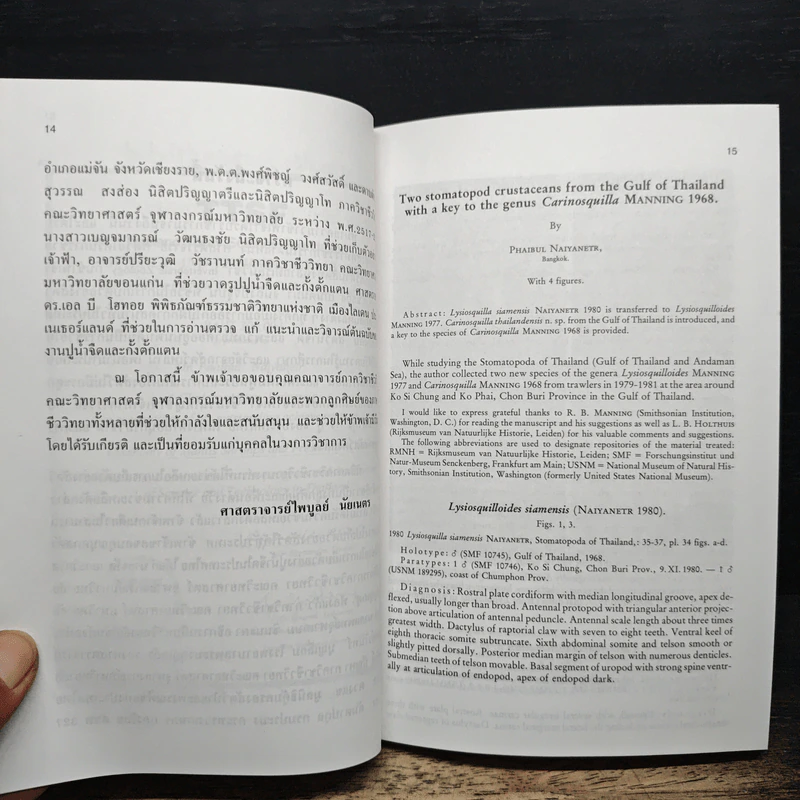 14
อำเภอแม่จัน จังหวัดเชียงราย, พ.ต.ต.พงศ์พิชญ์ วงศ์สวัสดิ์
สุวรรณ ส่งส่อง นิสิตปริญญาตรีและนิสิตปริญญาโท
คณะวิทยาศาสตร์ จุฬาลงกรณ์มหาวิทยาลัย ระหว่าง พ.ศ.2517-
นางสาวเบญจมาภรณ์ วัฒนธงชัย นิสิตปริญญาโท ที่ช่วยเก็บ
เจ้าฟ้า, อาจารย์ปรียะวุฒิ วัชรานนท์ ภาควิชาชีววิทยา คณะ
มหาวิทยาลัยขอนแก่น ที่ช่วยวาดรูปปูน้ำจืดและกั้งตั๊กแตน
ดร.เอล บี โฮทอย พิพิธภัณฑ์ธรรมชาติวิทยาแห่งชาติ เมืองไลเดน
เนเธอร์แลนด์ ที่ช่วยในการอ่านตรวจ แก้ แนะนำและวิจารณ์
งานปูน้ำจืดและกั้งตั๊กแตน
ณ โอกาสนี้ ข้าพเจ้าขอขอบคุณคณาจารย์
คณะวิทยาศาสตร์ จุฬาลงกรณ์มหาวิทยาลัยและพวกลูกศิษย์ของ
ชีววิทยาทั้งหลายที่ช่วยให้กำลังใจและสนับสนุน และช่วยให้
โดยได้รับเกียรติ และเป็นที่ยอมรับแก่บุคคลในวงการวิชาการ
ศาสตราจารย์ไพบูลย์ นัยเนตร
15
Two stomatopod crustaceans from the Gulf of Thailand
with a key to the genus Carinosquilla MANNING 1968.
By
PHAIBUL NAIYANETR,
Bangkok.
With 4 figures.
Abstract: Lysiosquilla siamensis NAIYANETR 1980 is transferred to Lysiosquilloides
MANNING 1977. Carinosquilla thailandensis n. sp. from the Gulf of Thailand is introduced, and
a key to the species of Carinosquilla MANNING 1968 is provided.
While studying the Stomatopoda of Thailand (Gulf of Thailand and Andaman
Sea), the author collected two new species of the genera Lysiosquilloides MANNING
1977 and Carinosquilla MANNING 1968 from trawlers in 1979-1981 at the area around
Ko Si Chung and Ko Phai, Chon Buri Province in the Gulf of Thailand.
I would like to express grateful thanks to R. B. MANNING (Smithsonian Institution,
Washington, D. C.) for reading the manuscript and his suggestions as well as L. B. HOLTHUIS
(Rijksmuseum van Natuurlijke Historie, Leiden) for his valuable comments and suggestions.
The following abbreviations are used to designate repositories of the material treated:
RMNH = Rijksmuseum van Natuurlijke Historie, Leiden; SMF = Forschungsinstitut und
Natur-Museum Senckenberg, Frankfurt am Main; USNM = National Museum of Natural His-
tory, Smithsonian Institution, Washington (formerly United States National Museum).
Lysiosquilloides siamensis (NAIYANETR 1980).
Figs. 1, 3.
1980 Lysiosquilla siamensis NAIYANETR, Stomatopoda of Thailand,: 35-37, pl. 34 figs. a-d.
Holotype: ♂ (SMF 10745), Gulf of Thailand, 1968.
Paratypes: 1 ♂ (SMF 10746), Ko Si Chung, Chon Buri Prov., 9. XI. 1980. — 1 ♂
(USNM 189295), coast of Chumphon Prov.
Diagnosis: Rostral plate cordiform with median longitudinal groove, apex de-
flexed, usually longer than broad. Antennal protopod with triangular anterior projec-
tion above articulation of antennal peduncle. Antennal scale length about three times
greatest width. Dactylus of raptorial claw with seven to eight teeth. Ventral keel of
eighth thoracic somite subtruncate. Sixth abdominal somite and telson smooth or
slightly pitted dorsally. Posterior median margin of telson with numerous denticles.
Submedian teeth of telson movable. Basal segment of uropod with strong spine ventr-
ally at articulation of endopod, apex of endopod dark.